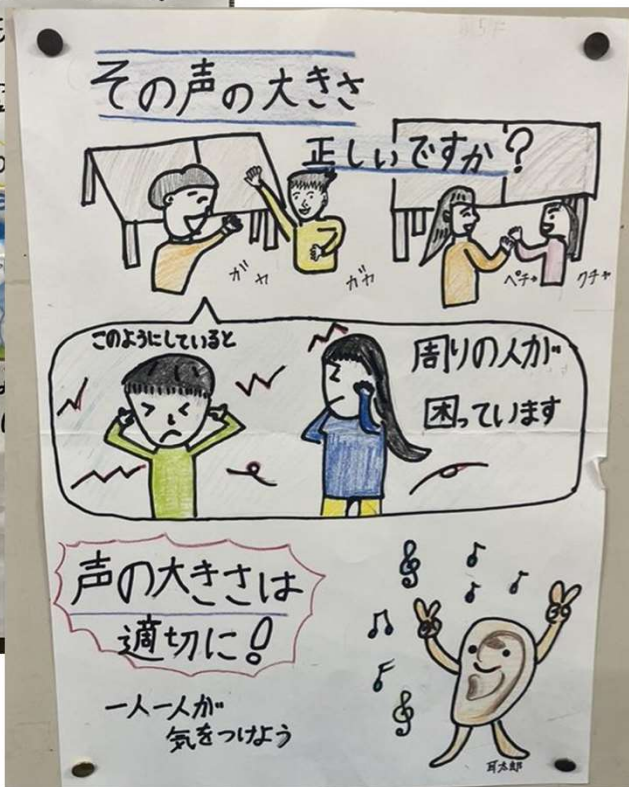 その声の大きさ
正しいですか?
ガヤ ガヤ
ペチャ クチャ
このようにしていると
周りの人が
困っています
声の大きさは
適切に!
一人一人が
気をつけよう
耳太郎